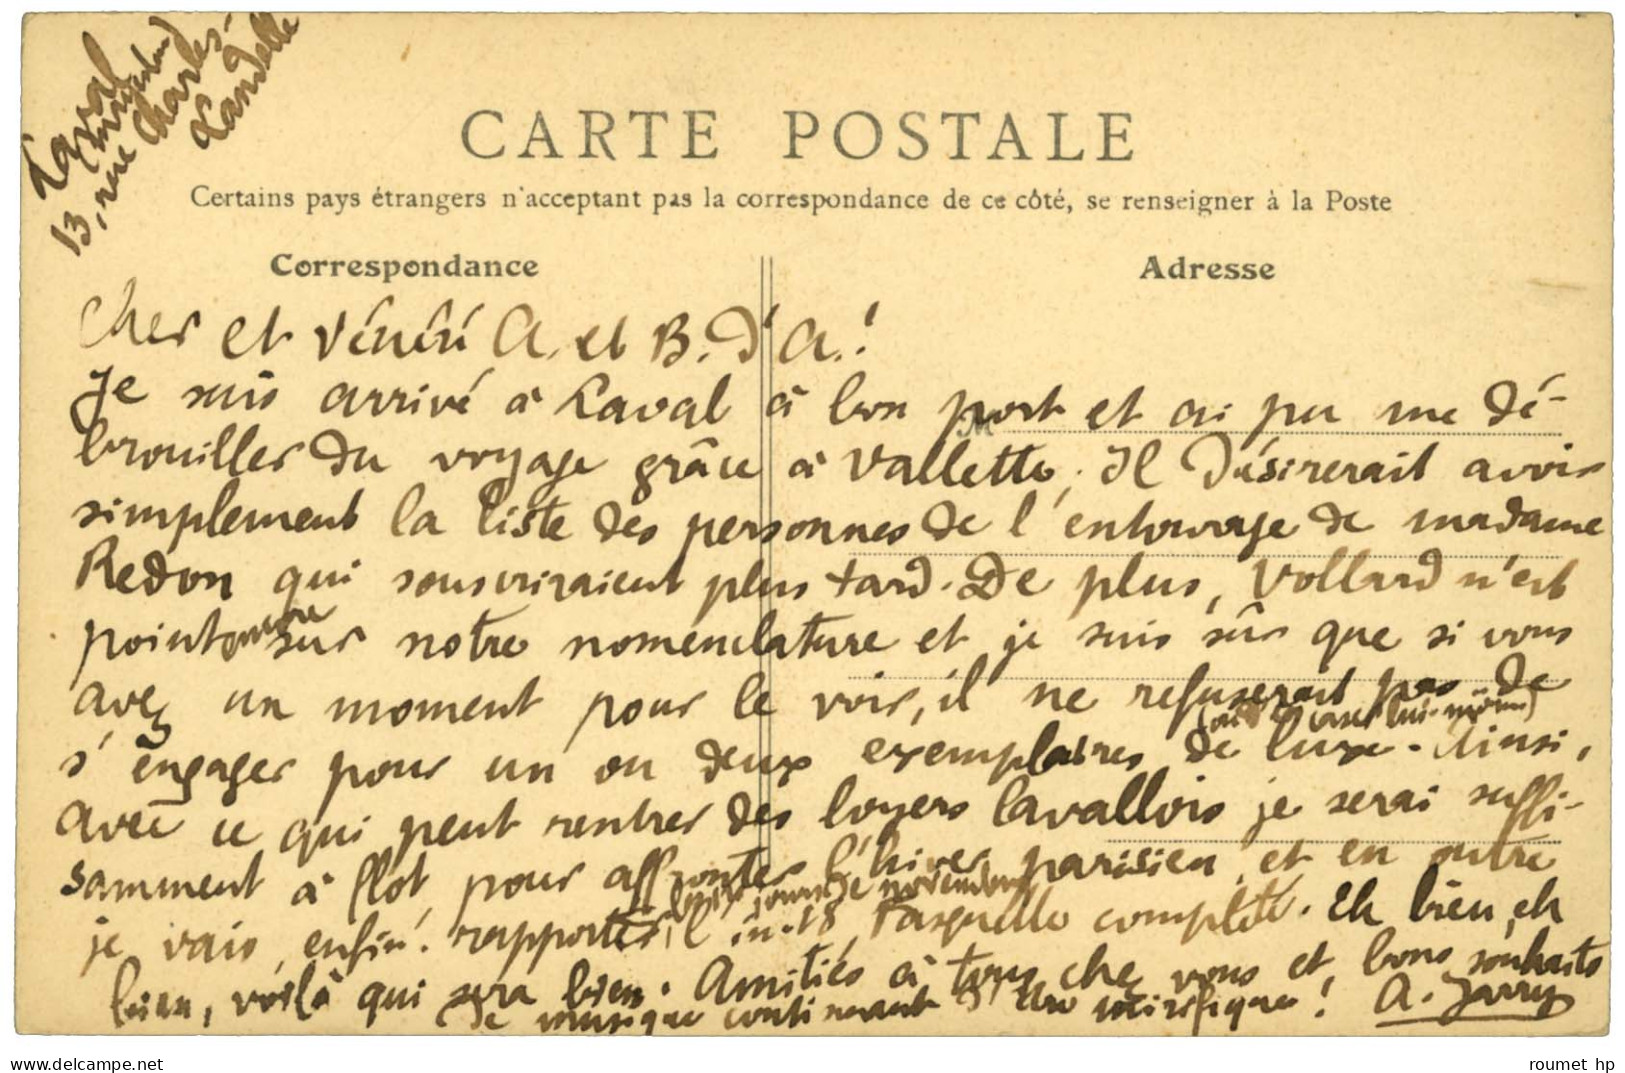 Laval
(Mayenne)
13, rue Charles-
Landelle
CARTE POSTALE
Certains pays étrangers n'acceptant pas la correspondance de ce côté, se renseigner à la Poste
Correspondance
Adresse
Cher et vénéré A. et B. d'A.!
Je suis arrivé à Laval à bon port et ai pu me dé-
brouiller du voyage grâce à Vallette. Il désirerait avoir
simplement la liste des personnes de l'entourage de madame
Redon qui souscriraient plus tard. De plus, Vollard n'est
point encore sur notre nomenclature et je suis sûr que si vous
avez un moment pour le voir, il ne refuserait pas de
s'engager pour un ou deux exemplaires de luxe. Ainsi,
avec ce qui peut rentrer des loyers lavallois je serai suffi-
samment à flot pour affronter l'hiver parisien, et en outre
je vais, enfin! rapporter, l'in-18 Fasquelle complété. Eh bien, eh
bien, voilà qui sera bien. Amitiés à tous chez vous et bons souhaits
de musique continuant d'être mirifique! A. Jarry
roumet hp